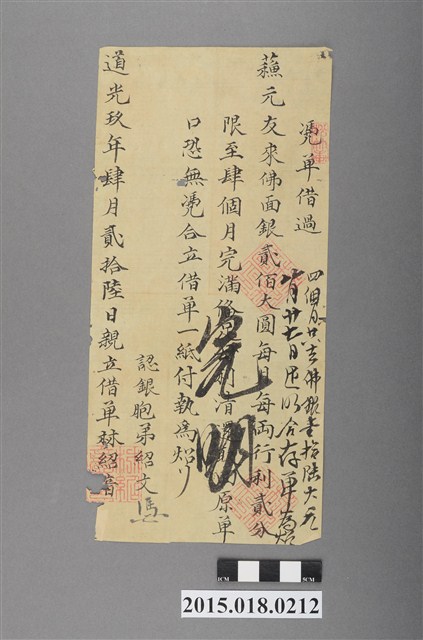 憑單借過
蘓元友來佛面銀貳佰大圓每月每両行利貳分
限至肆個月完滿 清 原單
口恐無憑合立借單一紙付執為炤
認銀胞弟紹文
道光玖年肆月貳拾陸日親立借單林紹
完明
四個月 去佛銀壹拾陸大元
月廿七日 明 存單為炤
CM
5CM
2015.018.0212